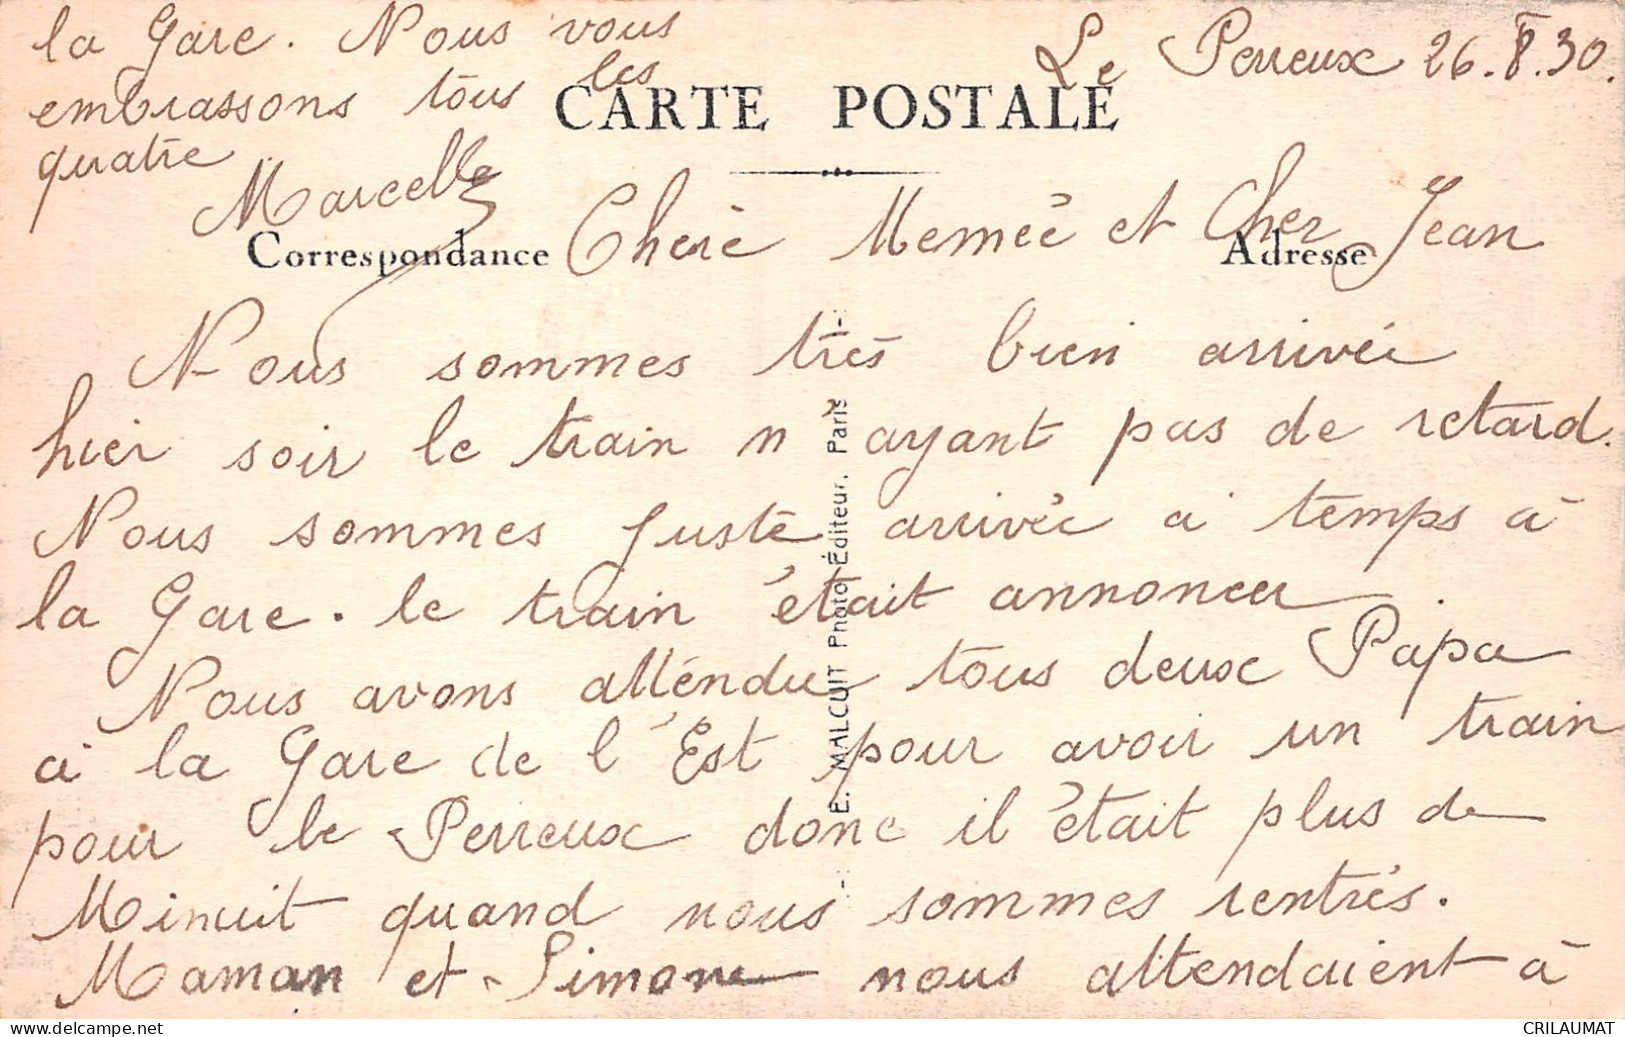 Le Perreux 26.8.30.
CARTE POSTALE
Correspondance
Adresse
Cherè Memeé et Cher Jean
Nous sommes très bien arrivée
hier soir le train n ayant pas de retard.
Nous sommes Juste arrivée a temps à
la Gare. le train était annoncer.
Nous avons attendu tous deux Papa
a la Gare de l'Est pour avoir un train
pour le Perreux donc il était plus de
Minuit quand nous sommes rentrés.
Maman et Simone nous attendaient à
la Gare. Nous vous
embrassons tous les
quatre
Marcelle
E. MALCUIT Photo, Éditeur, Paris
CRILAUMAT